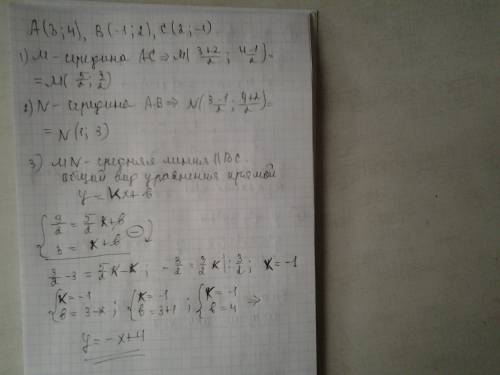 A(3;4), B(-1;2), C(2;-1)
1) M - середина AC ⇒ M( (3+2)/2 ; (4-1)/2 ) =
= M( 5/2 ; 3/2 )
2) N - середина AB ⇒ N( (3-1)/2 ; (4+2)/2 ) =
= N(1; 3)
3) MN - средняя линия || BC
общий вид уравнения прямой
y = kx + b
{ 3/2 = 5/2 k + b
3 = k + b (-)
3/2 - 3 = 5/2 k - k ; - 3/2 = 3/2 k |: 3/2 ; k = -1
{ k = -1 ; { k = -1 ; { k = -1 ⇒
b = 3 - k ; b = 3+1 ; b = 4
y = -x + 4